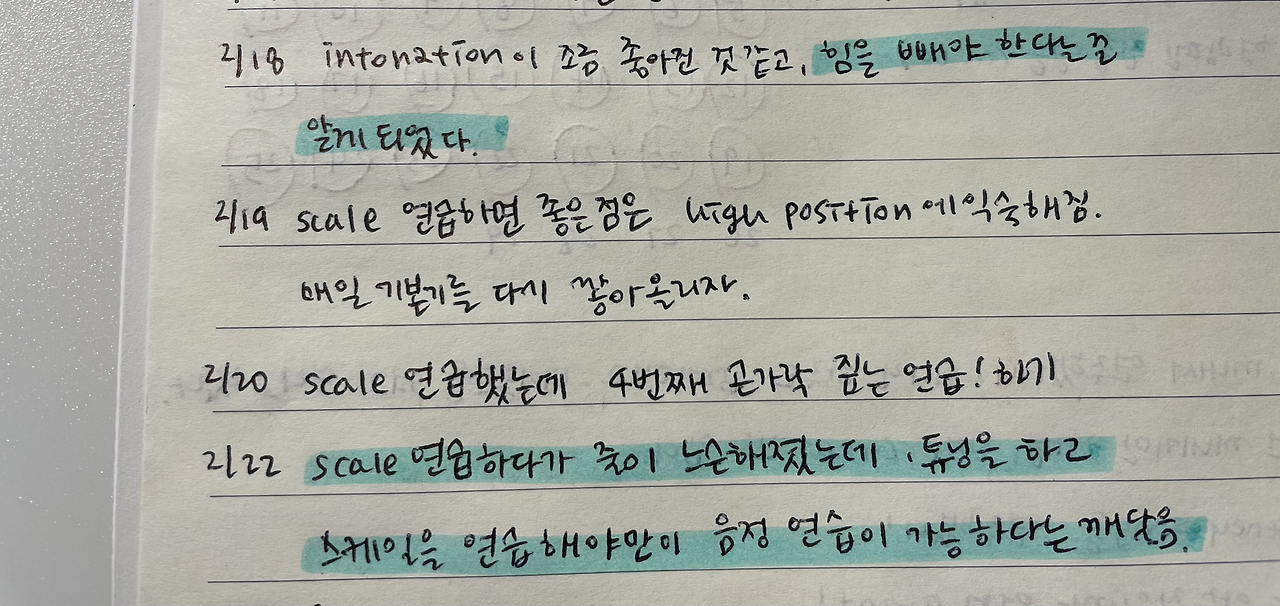 2/18 intonation이 조금 좋아진 것 같고, 힘을 빼야 한다는 걸
알게 되었다.
2/19 scale 연습하면 좋은점은 high position에 익숙해짐.
매일 기본기를 다시 쌓아올리자.
2/20 scale 연습했는데 4번째 손가락 짚는 연습! 하기
2/22 scale 연습하다가 줄이 느슨해졌는데, 튜닝을 하고
스케일을 연습해야만이 음정 연습이 가능하다는 깨달음.